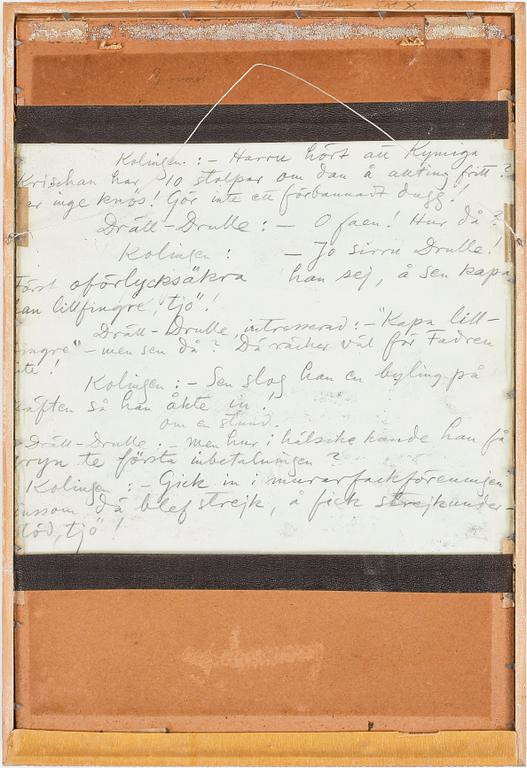 Kolingen: – Harru hört att Kymiga
Krischan har 10 stolpar om dan å allting fritt?
ar inge knos! Gör inte ett förbannadt dugg!
Drätt-Drulle: – O faen! Hur då?
Kolingen: – Jo sirru Drulle!
Först oförlycksäkra han sej, å sen kapa
han lillfingre, tjo"!
Drätt-Drulle, intresserad: – "Kapa lill-
ingre" – men sen då? Då räcker väl för Fadren
te!
Kolingen: – Sen slog han en byling på
käften så han åkte in!
om en stund.
Drätt-Drulle. – Men hur i hälsike kunde han få
ryn te första inbetalningen?
Kolingen: – Gick in i murarfackföreningen
inssom då blef strejk, å fick strejkunder-
stöd, tjo"!